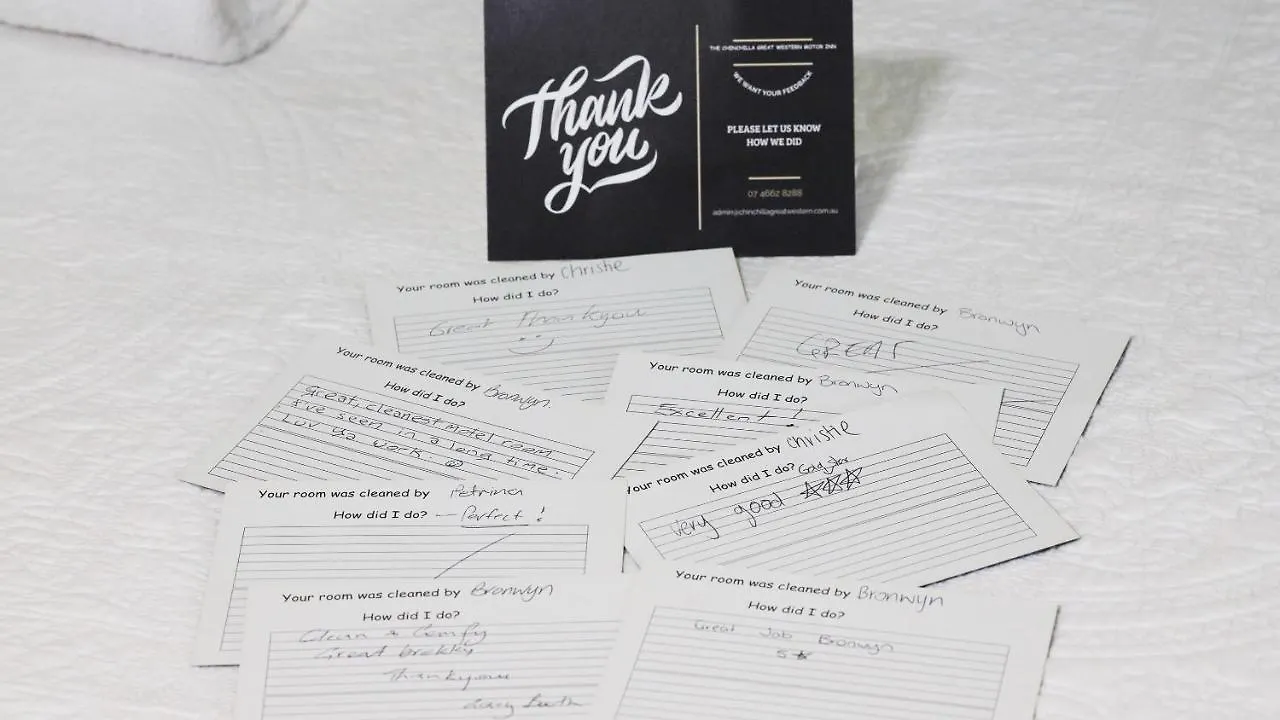 Thank
you
THE CHINCHILLA GREAT WESTERN MOTOR INN
WE WANT YOUR FEEDBACK
PLEASE LET US KNOW
HOW WE DID
07 4662 8288
admin@chinchillagreatwestern.com.au
Your room was cleaned by Christie
How did I do?
Great Thankyou
Your room was cleaned by Bronwyn
How did I do?
GREAT
Your room was cleaned by Bronwyn.
How did I do?
Great, cleanest motel room
I've seen in a long time.
Luv ya work
Your room was cleaned by Bronwyn
How did I do?
Excellent!
Your room was cleaned by Christie
How did I do?
Very good
Your room was cleaned by Petrina
How did I do? - Perfect!
Your room was cleaned by Bronwyn
How did I do?
Clean & Comfy
Great brekky
Thankyou
Your room was cleaned by Bronwyn
How did I do?
Great Job Bronwyn
5